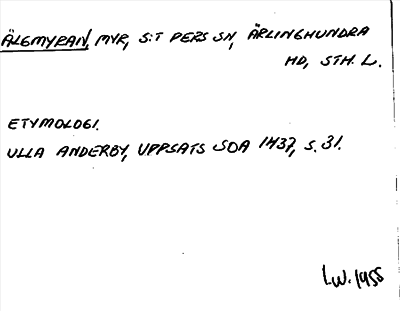 ÄLGMYRAN, MYR, S:T PERS SN, ÄRLINGHUNDRA
HD, STH. L.
ETYMOLOGI.
ULLA ANDERBY, UPPSATS SOA 1437, S. 31.
I.W. 1955